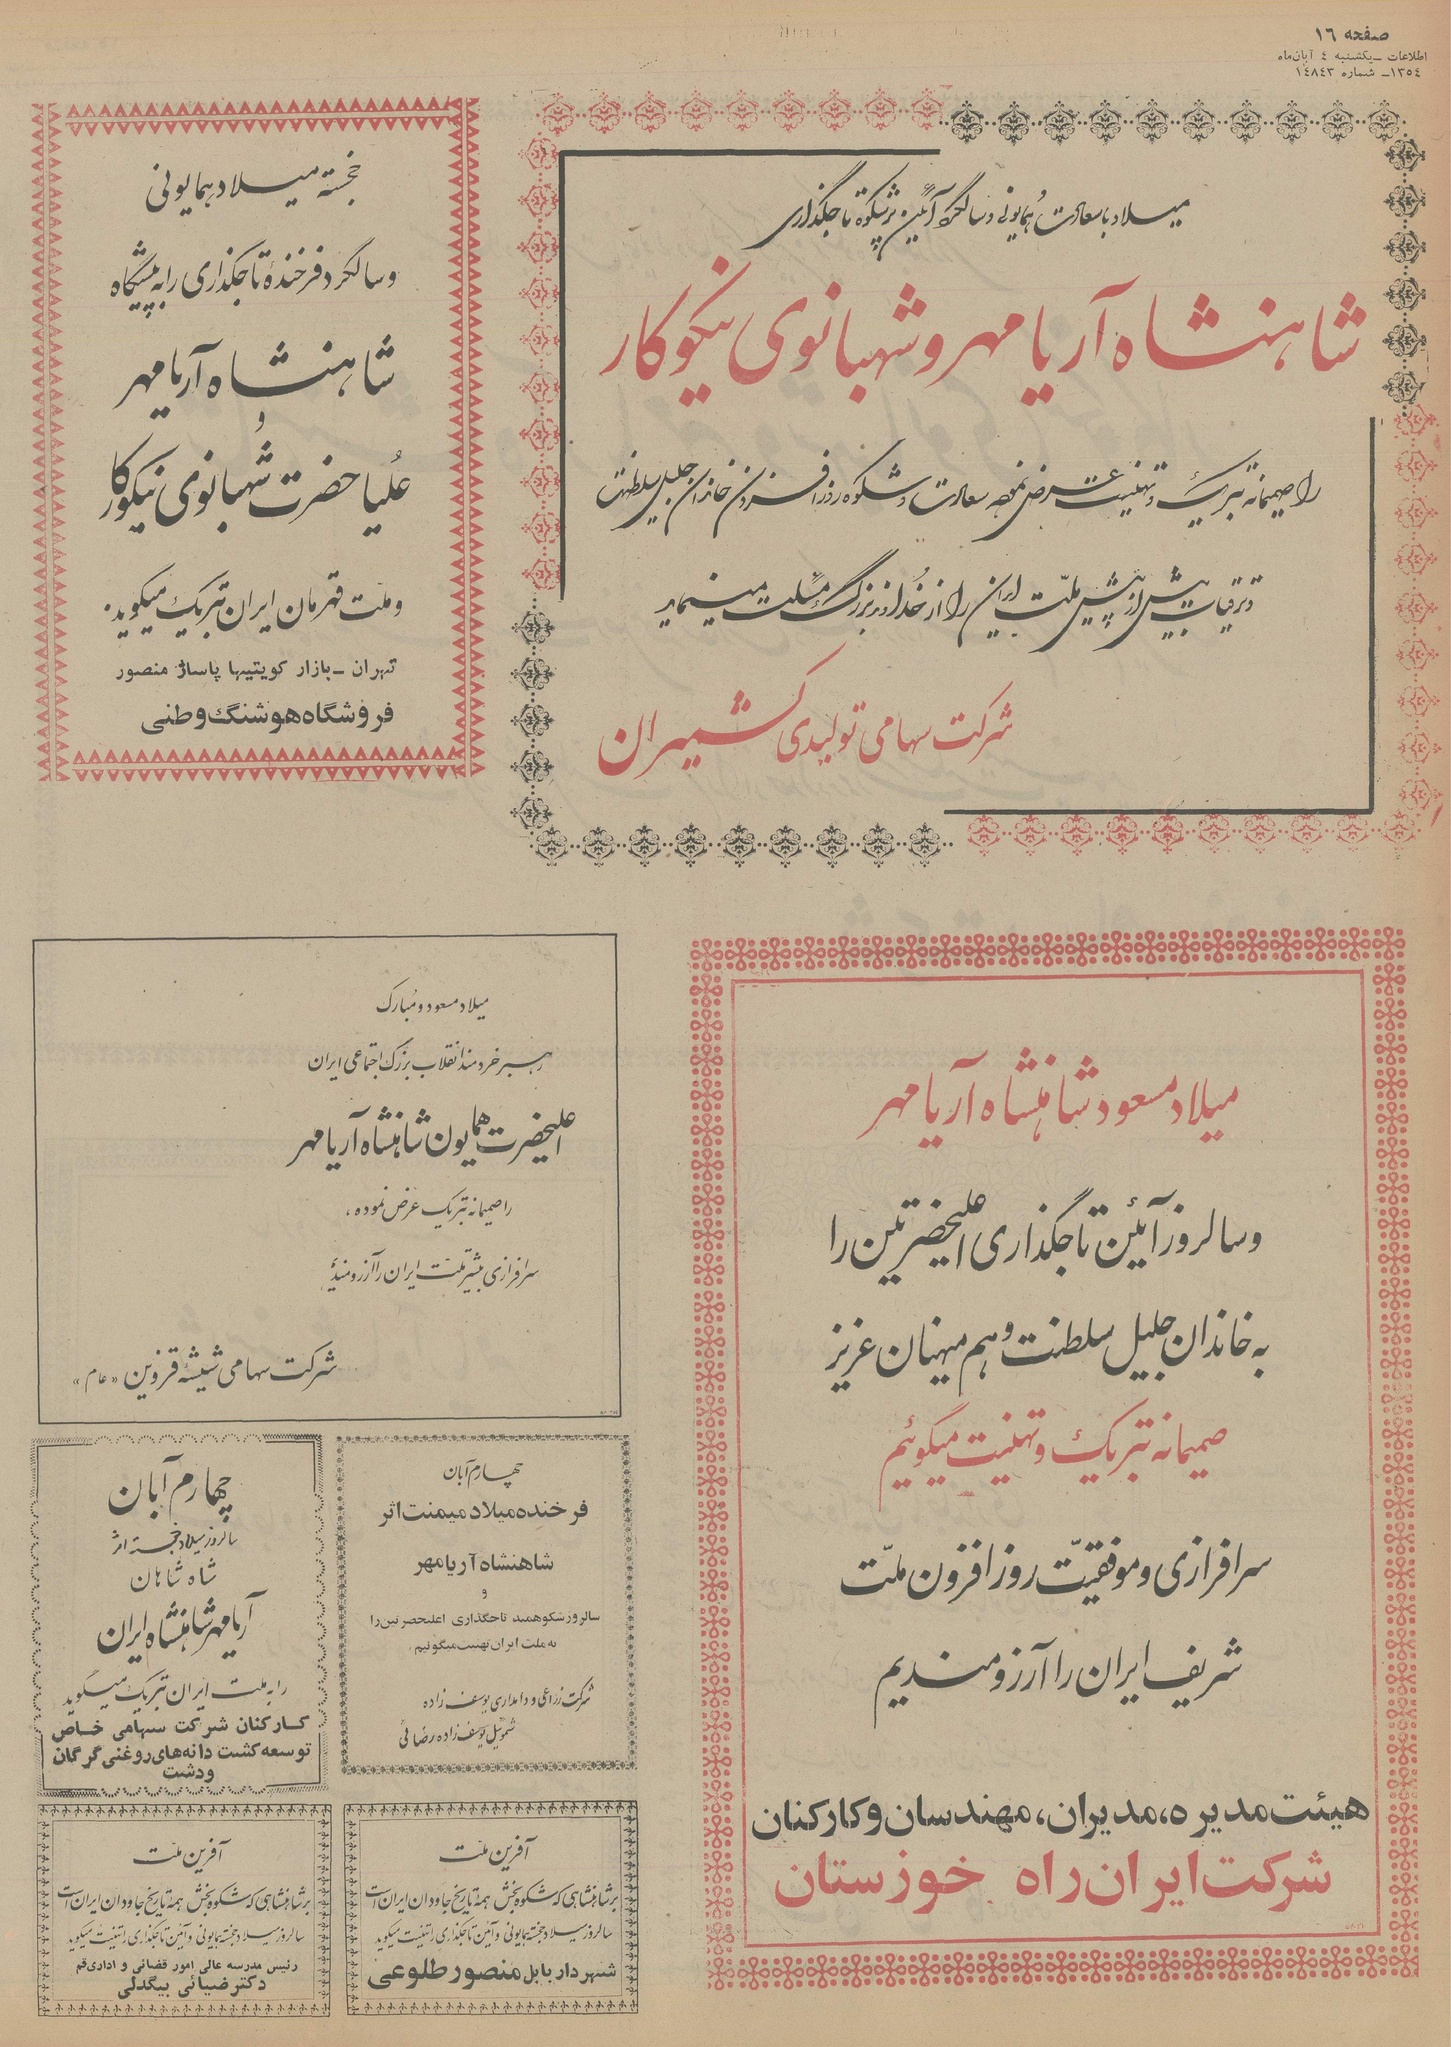 صفحه ١٦
اطلاعات ــ یکشنبه ٤ آبان‌ماه
١٣٥٤ــ شماره ١٤٨٤٣
میلاد با سعادت همایونی و سالگرد آئین پرشکوه تاجگذاری
شاهنشاه آریامهر و شهبانوی نیکوکار
را صمیمانه تبریک و تهنیت عرض نموده سعادت و شکوه روزافزون خاندان جلیل سلطنت
و ترقیات بیش از پیش ملّت ایران را از خداوند بزرگ مسئلت مینماید
شرکت سهامی تولیدی کشمیران
خجسته میلاد همایونی
و سالگرد فرخنده تاجگذاری را به پیشگاه
شاهنشاه آریامهر
و
علیاحضرت شهبانوی نیکوکار
و ملت قهرمان ایران تبریک میگوید.
تهران ــ بازار کویتیها پاساژ منصور
فروشگاه هوشنگ وطنی
میلاد مسعود شاهنشاه آریامهر
و سالروز آئین تاجگذاری اعلیحضرتین را
به خاندان جلیل سلطنت و هم میهنان عزیز
صمیمانه تبریک و تهنیت میگوئیم
سرافرازی و موفقیّت روزافزون ملّت
شریف ایران را آرزومندیم
هیئت مدیره، مدیران، مهندسان و کارکنان
شرکت ایران راه خوزستان
میلاد مسعود و مبارک
رهبر خردمند انقلاب بزرگ اجتماعی ایران
اعلیحضرت همایون شاهنشاه آریامهر
را صمیمانه تبریک عرض نموده،
سرافرازی بیشتر ملت ایران را آرزومندیم
شرکت سهامی شیشه قزوین «عام»
چهارم آبان
فرخنده میلاد میمنت اثر
شاهنشاه آریامهر
و
سالروز شکوهمند تاجگذاری اعلیحضرتین را
به ملت ایران تهنیت میگوئیم
شرکت زراعی و دامداری یوسف زاده
شموئیل یوسف زاده رضائی
چهارم آبان
سالروز میلاد خجسته اثر
شاه شاهان
آریامهر شاهنشاه ایران
را به ملت ایران تبریک میگوید
کارکنان شرکت سهامی خاص
توسعه کشت دانه‌های روغنی گرگان
ودشت
آفرین ملت
بر شاهنشاهی که شکوه بخش همه تاریخ جاودان ایران است
سالروز میلاد خجسته همایونی و آئین تاجگذاری را تهنیت میگوید
شهردار بابل منصور طلوعی
آفرین ملت
بر شاهنشاهی که شکوه بخش همه تاریخ جاودان ایران است
سالروز میلاد خجسته همایونی و آئین تاجگذاری را تهنیت میگوید
رئیس مدرسه عالی امور قضائی و اداری قم
دکتر ضیائی بیگدلی